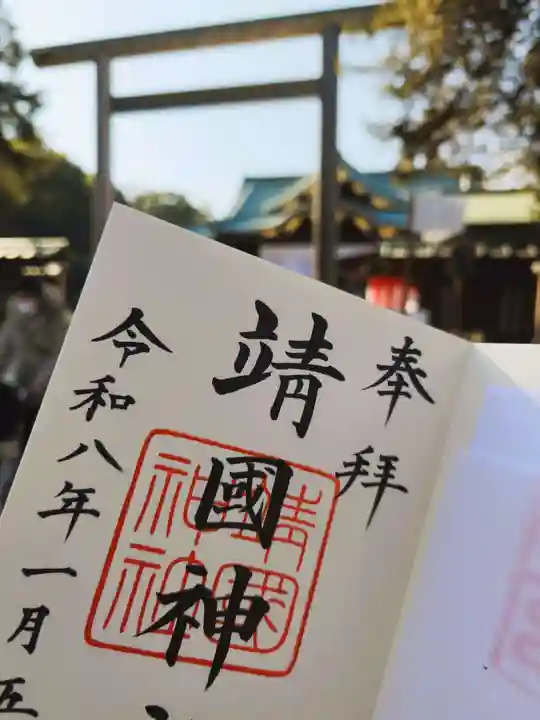 奉拝
靖國神
靖國神社
令和八年一月五